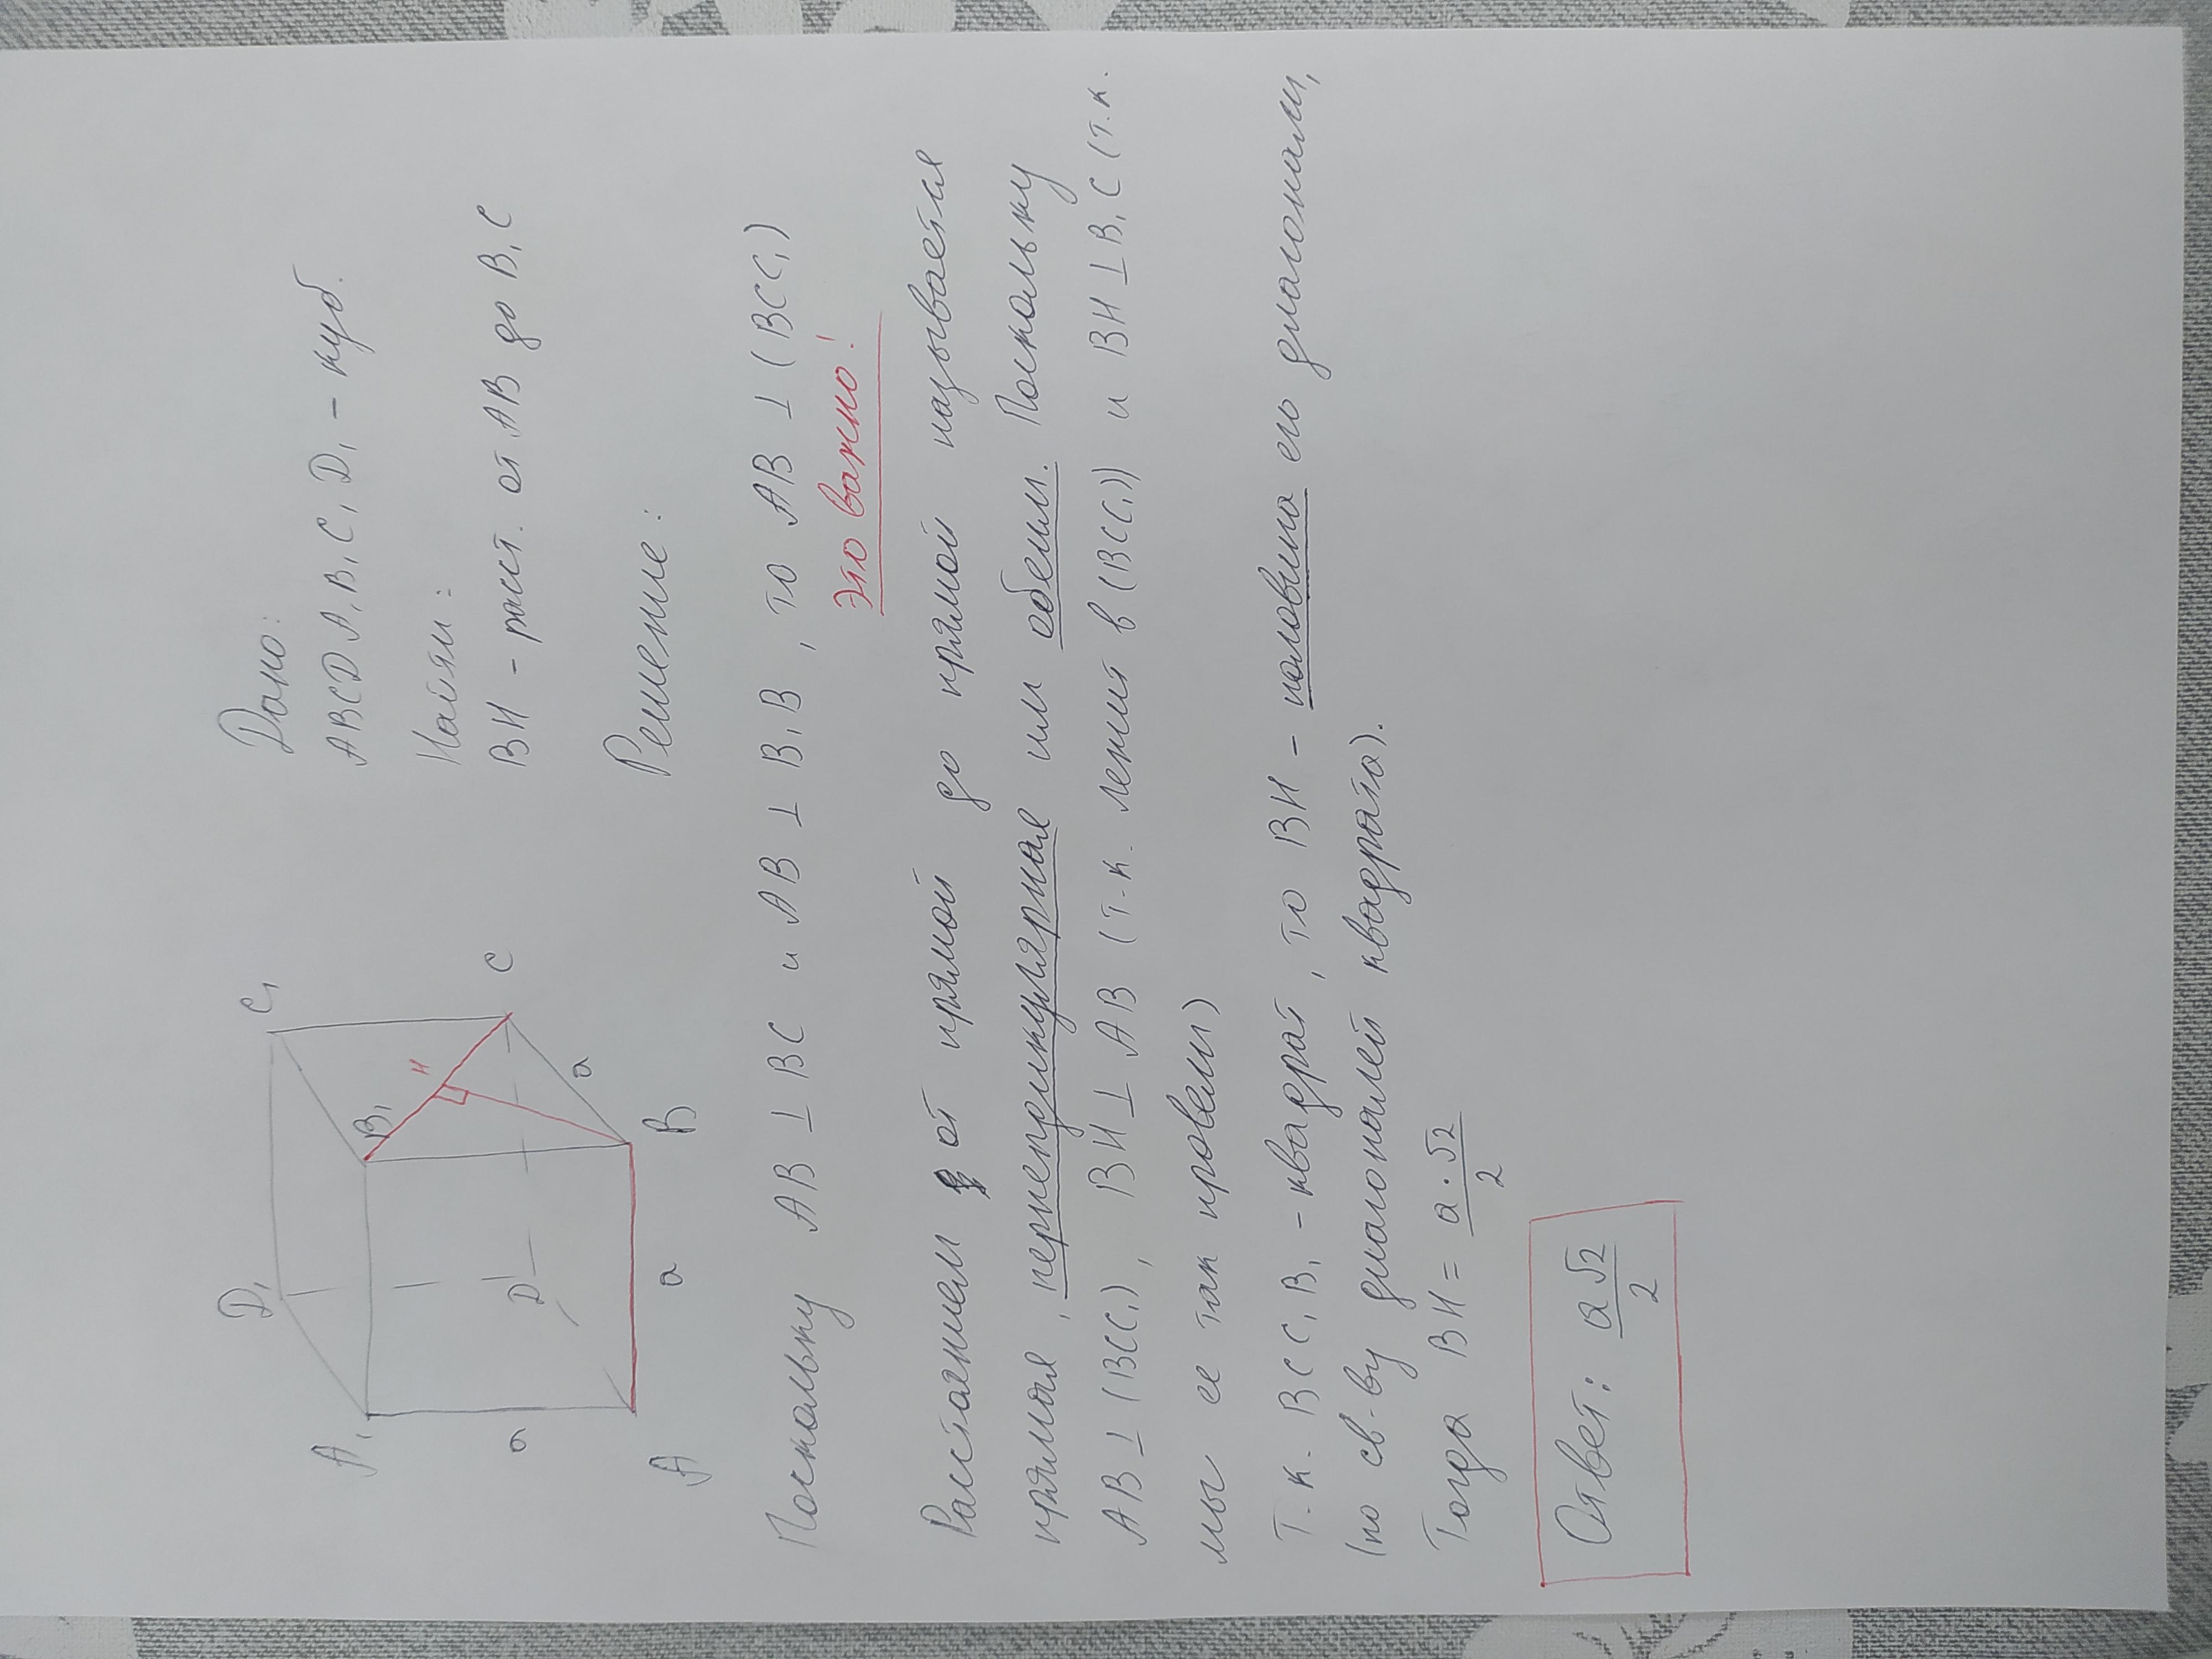 Дано:
ABCDA₁B₁C₁D₁ - куб.
Найти:
BH - расст. от AB до B₁C
Решение:
D₁
C₁
A₁
B₁
H
C
a
D
a
A
a
B
Поскольку AB ⊥ BC и AB ⊥ B₁B, то AB ⊥ (BCC₁)
Это важно!
Расстоянием от прямой до прямой называется
прямая, перпендикулярная им обеим. Поскольку
AB ⊥ (BCC₁), BH ⊥ AB (т.к. лежит в (BCC₁)) и BH ⊥ B₁C (т.к.
мы ее так провели)
Т.к. BCC₁B₁ - квадрат, то BH - половина его диагонали,
(по св-ву диагоналей квадрата).
Тогда BH = a·√2/2
Ответ: a√2/2